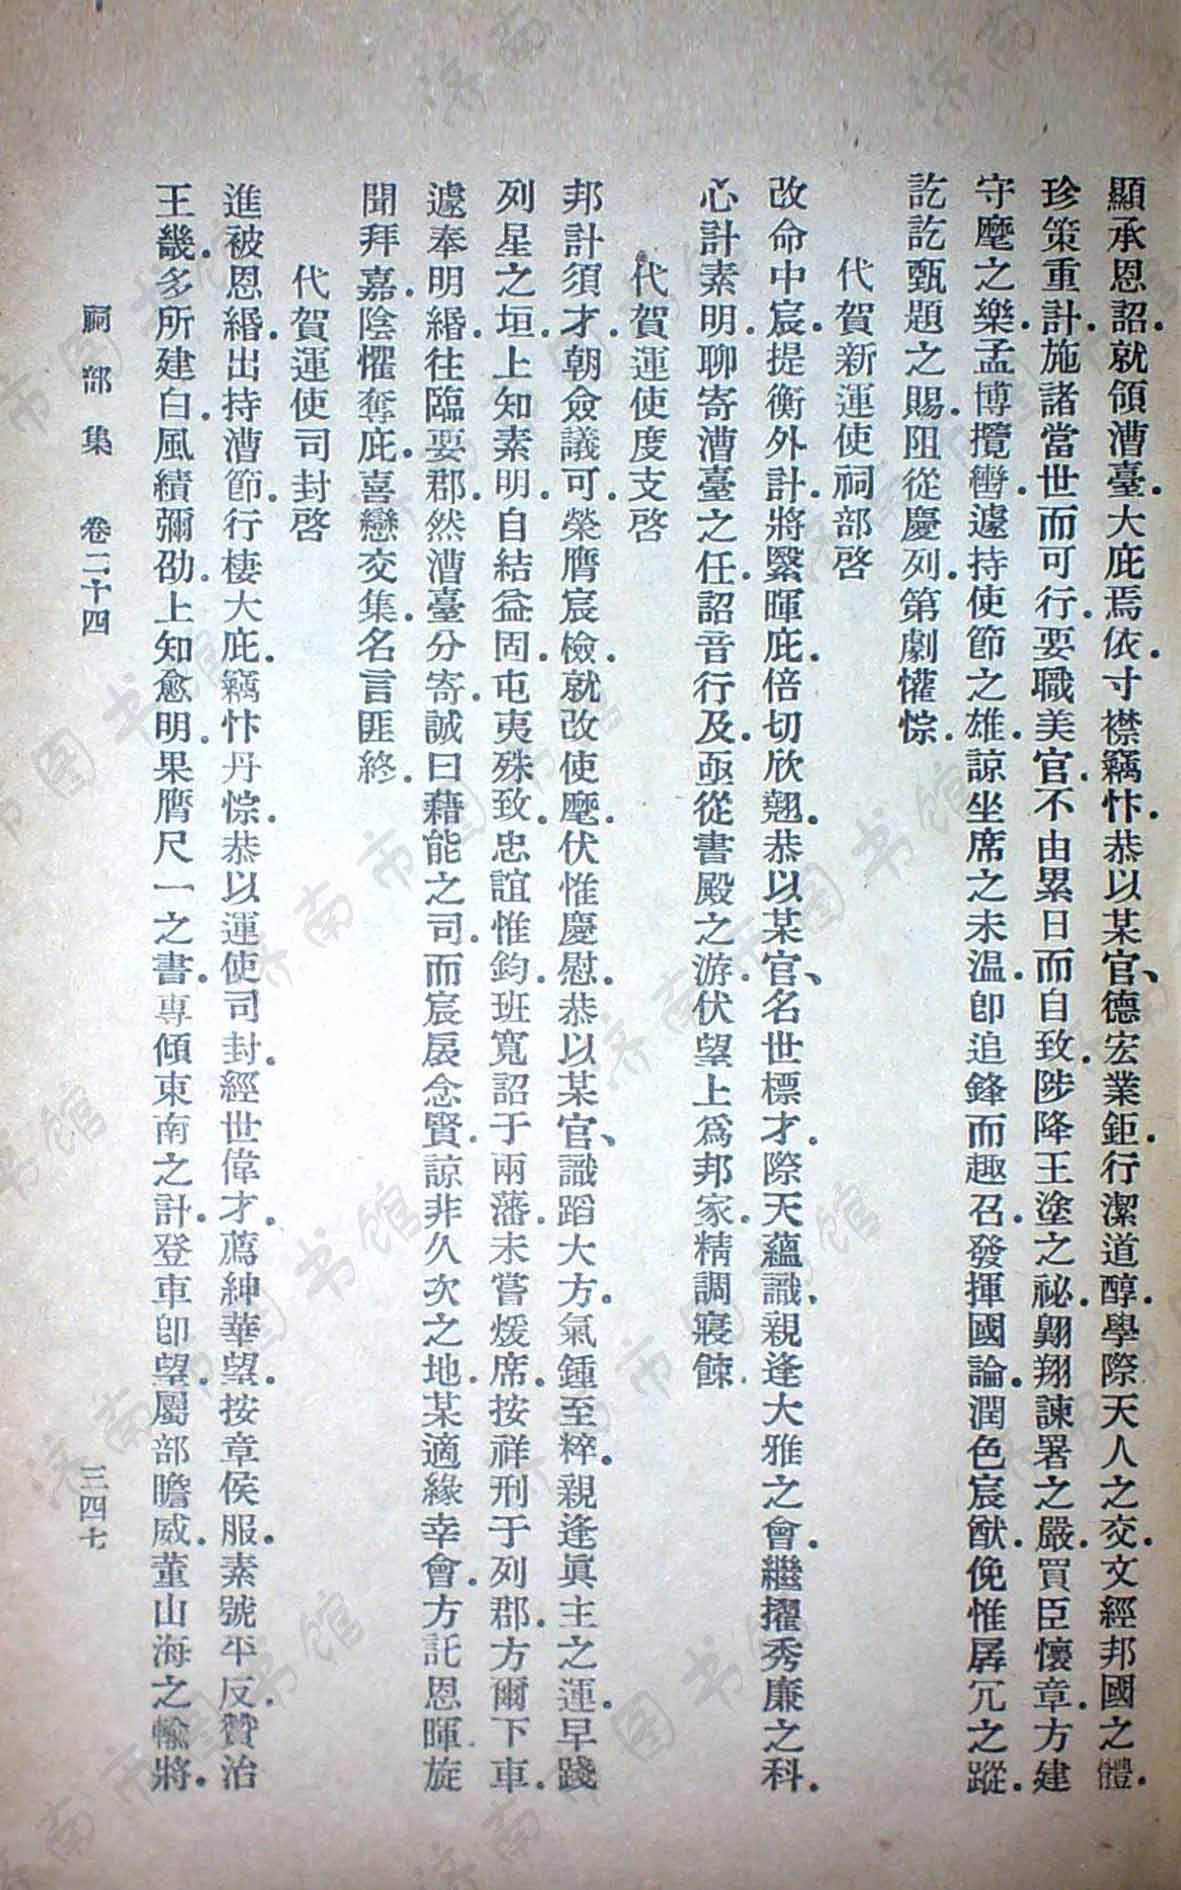 顯承恩詔.就領漕臺.大庇焉依.寸襟竊忭.恭以某官、德宏業鉅.行潔道醇.學際天人之交.文經邦國之體.
珍策重計.施諸當世而可行.要職美官.不由累日而自致.陟降王塗之祕.翺翔諫署之嚴.買臣懷章.方建
守麾之樂.孟博攬轡.遽持使節之雄.諒坐席之未温.卽追鋒而趣召.發揮國論.潤色宸猷.俛惟孱冗之蹤.
訖訖甄題之賜.阻從慶列.第劇懽悰.
代賀新運使祠部啓
改命中宸.提衡外計.將繄暉庇.倍切欣翹.恭以某官、名世標才.際天蘊識、親逢大雅之會.繼擢秀廉之科.
心計素明.聊寄漕臺之任.詔音行及.亟從書殿之游.伏望上爲邦家.精調寢餗.
代賀運使度支啓
邦計須才.朝僉議可.榮膺宸檢.就改使麾.伏惟慶慰.恭以某官、識蹈大方.氣鍾至粹.親逢眞主之運.早踐
列星之垣.上知素明.自結益固.屯夷殊致.忠誼惟鈞.班寬詔于兩藩.未嘗煖席.按祥刑于列郡.方爾下車.
遽奉明緡.往臨要郡.然漕臺分寄.誠曰藉能之司.而宸扆念賢.諒非久次之地.某適緣幸會.方託恩暉.旋
聞拜嘉.陰懼奪庇.喜戀交集.名言匪終.
代賀運使司封啓
進被恩緡.出持漕節.行棲大庇.竊忭丹悰.恭以運使司封.經世偉才.薦紳華望.按章侯服.素號平反.贊治
王畿.多所建白.風績彌劭.上知愈明.果膺尺一之書.專傾東南之計.登車卽望.屬部瞻威.董山海之輸將.
祠部集 卷二十四 三四七